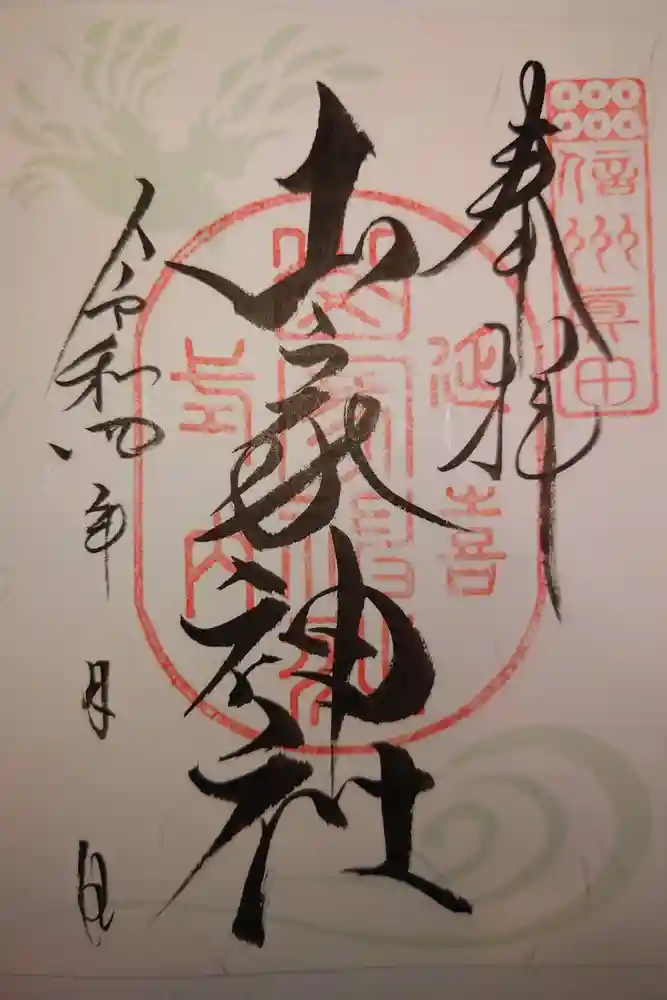 奉拝
信州真田
山家神社
延喜
式内
令和四年 月 日